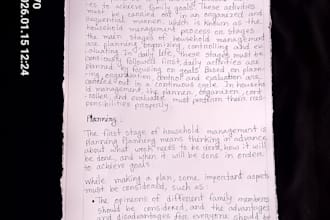 ties to achieve family goals. These activities
must be carried out in an organized and
sequential manner, which is known as the
household management process or stages.
The main stages of household management
are planning, organizing, controlling and ev-
aluating. In daily life, these stages must be
continuously followed. First, daily activities are
planned by focusing on goals. Based on plann-
ing, organization, control and evaluation are
carried out in a continuous cycle. In househo
ld management, the planner, organizer, cont
roller and evaluator must perform their res-
ponsibilities properly.
Planning:
The first stage of household management is
planning. Planning means thinking in advance
about what work needs to be done, how it will
be done, and when it will be done in order
to achieve goals.
While making a plan, some important aspects
must be considered, such as:
• The opinions of different family members
should be considered, and the advantages
and disadvantages for everyone should be
70
026.01.15 12:24